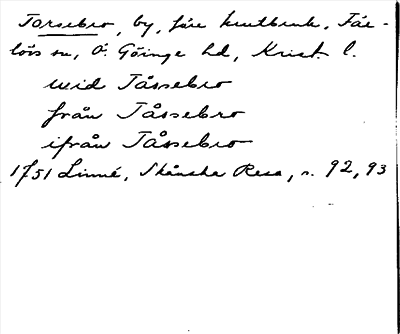 Torsebro, by, före krutbruk, Fär-
lövs sn, Ö. Göinge hd, Krist. l.
wid Tåssebro
från Tåssebro
ifrån Tåssebro
1751 Linné, Skånska Resa, s. 92, 93